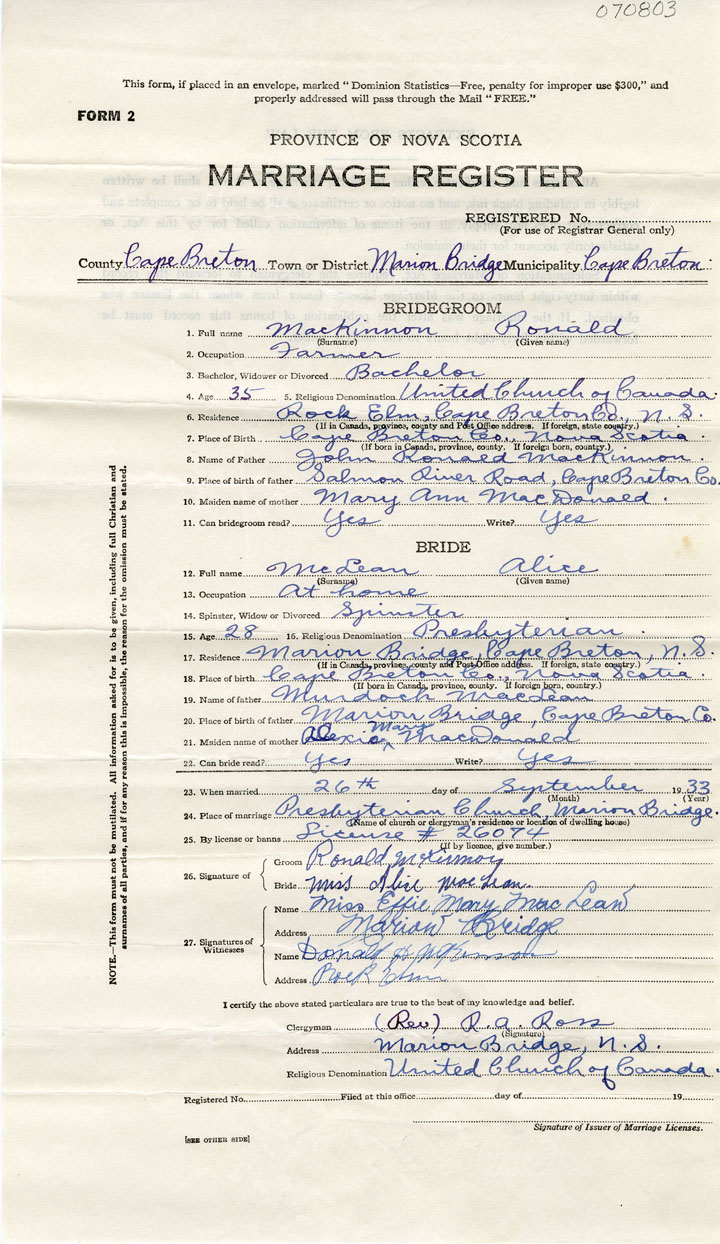 070803
This form, if placed in an envelope, marked "Dominion Statistics—Free, penalty for improper use $300," and
properly addressed will pass through the Mail "FREE."
FORM 2
PROVINCE OF NOVA SCOTIA
MARRIAGE REGISTER
REGISTERED No.
(For use of Registrar General only)
County Cape Breton Town or District Marion Bridge Municipality Cape Breton
BRIDEGROOM
1. Full name MacKinnon Ronald
(Surname) (Given name)
2. Occupation Farmer
3. Bachelor, Widower or Divorced Bachelor
4. Age 35 5. Religious Denomination United Church of Canada.
6. Residence Rock Elm, Cape Breton Co., N.S.
(If in Canada, province, county and Post Office address. If foreign, state country.)
7. Place of Birth Cape Breton Co., Nova Scotia.
(If born in Canada, province, county. If foreign born, country.)
8. Name of Father John Ronald MacKinnon.
9. Place of birth of father Salmon River Road, Cape Breton Co.
10. Maiden name of mother Mary Ann MacDonald.
11. Can bridegroom read? Yes Write? Yes
BRIDE
12. Full name McLean Alice
(Surname) (Given name)
13. Occupation At home
14. Spinster, Widow or Divorced Spinster
15. Age 28 16. Religious Denomination Presbyterian.
17. Residence Marion Bridge, Cape Breton, N.S.
(If in Canada, province, county and Post Office address. If foreign, state country.)
18. Place of birth Cape Breton Co., Nova Scotia.
(If born in Canada, province, county. If foreign born, country.)
19. Name of father Murdoch MacLean
20. Place of birth of father Marion Bridge, Cape Breton Co.
21. Maiden name of mother Alexia Mary MacDonald
22. Can bride read? Yes Write? Yes
23. When married 26th day of September 1933
(Month) (Year)
24. Place of marriage Presbyterian Church, Marion Bridge.
(Name of church or clergyman's residence or location of dwelling house)
25. By license or banns License # 26074
(If by licence, give number.)
26. Signature of Groom Ronald McKinnon
Bride Miss Alice MacLean.
27. Signatures of Witnesses
Name Miss Effie Mary MacLean
Address Marion Bridge
Name Donald McKinnon
Address Rock Elm
I certify the above stated particulars are true to the best of my knowledge and belief.
Clergyman (Rev) R.A. Ross
(Signature)
Address Marion Bridge, N.S.
Religious Denomination United Church of Canada.
Registered No. Filed at this office day of 19
Signature of Issuer of Marriage Licenses.
[SEE OTHER SIDE]
NOTE.—This form must not be mutilated. All information asked for is to be given, including full Christian and
surnames of all parties, and if for any reason this is impossible, the reason for the omission must be stated.